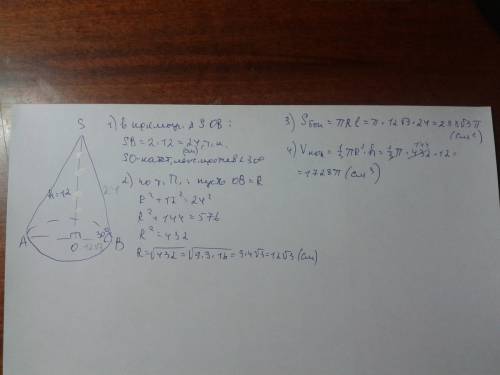 S
h=12
24
A
O
12√3
30°
B
1) В прямоуг. Δ SOB:
SB=2·12=24, т.к.
(см)
SO-катет, леж. против ∠30°
2) по т. П.: пусть OB=R
R²+12²=24²
R²+144=576
R²=432
R=√432=√9·3·16=3·4√3=12√3 (см)
3) Sбок=πRl=π·12√3·24=288√3π
(см²)
4) Vкон=⅓πR²·h=⅓π·432·12=
144
=1728π (см³)